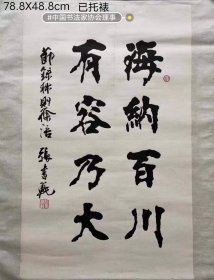 78.8X48.8cm 已托裱
#中国书法家协会理事
海納百川
有容乃大
節錄林則徐語 張書範